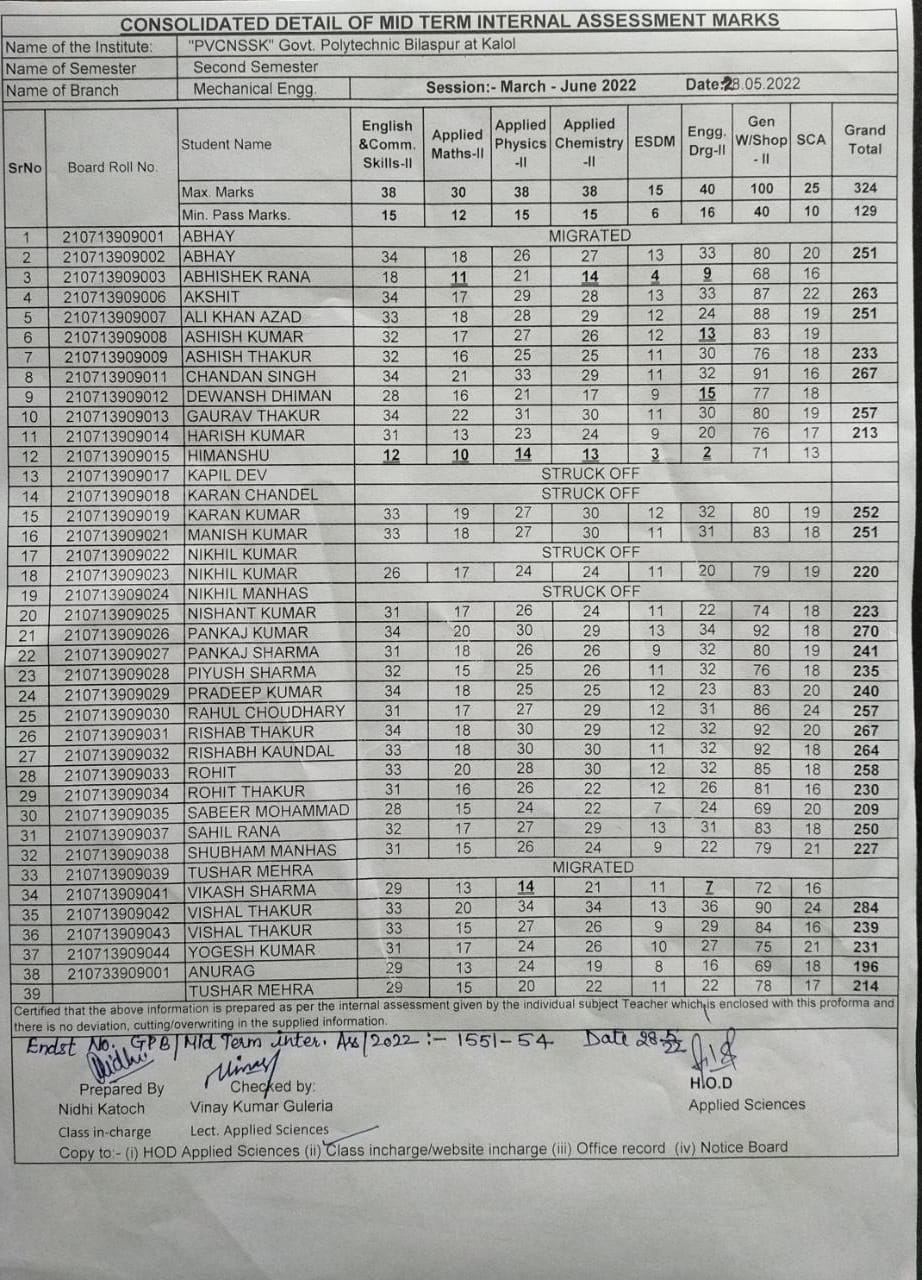 CONSOLIDATED DETAIL OF MID TERM INTERNAL ASSESSMENT MARKS
Name of the Institute: "PVCNSSK" Govt. Polytechnic Bilaspur at Kalol
Name of Semester Second Semester
Name of Branch Mechanical Engg. Session:- March - June 2022 Date:28.05.2022
SrNo Board Roll No. Student Name English &Comm. Skills-II Applied Maths-II Applied Physics -II Applied Chemistry -II ESDM Engg. Drg-II Gen W/Shop - II SCA Grand Total
Max. Marks 38 30 38 38 15 40 100 25 324
Min. Pass Marks. 15 12 15 15 6 16 40 10 129
1 210713909001 ABHAY MIGRATED
2 210713909002 ABHAY 34 18 26 27 13 33 80 20 251
3 210713909003 ABHISHEK RANA 18 11 21 14 4 9 68 16
4 210713909006 AKSHIT 34 17 29 28 13 33 87 22 263
5 210713909007 ALI KHAN AZAD 33 18 28 29 12 24 88 19 251
6 210713909008 ASHISH KUMAR 32 17 27 26 12 13 83 19
7 210713909009 ASHISH THAKUR 32 16 25 25 11 30 76 18 233
8 210713909011 CHANDAN SINGH 34 21 33 29 11 32 91 16 267
9 210713909012 DEWANSH DHIMAN 28 16 21 17 9 15 77 18
10 210713909013 GAURAV THAKUR 34 22 31 30 11 30 80 19 257
11 210713909014 HARISH KUMAR 31 13 23 24 9 20 76 17 213
12 210713909015 HIMANSHU 12 10 14 13 3 2 71 13
13 210713909017 KAPIL DEV STRUCK OFF
14 210713909018 KARAN CHANDEL STRUCK OFF
15 210713909019 KARAN KUMAR 33 19 27 30 12 32 80 19 252
16 210713909021 MANISH KUMAR 33 18 27 30 11 31 83 18 251
17 210713909022 NIKHIL KUMAR STRUCK OFF
18 210713909023 NIKHIL KUMAR 26 17 24 24 11 20 79 19 220
19 210713909024 NIKHIL MANHAS STRUCK OFF
20 210713909025 NISHANT KUMAR 31 17 26 24 11 22 74 18 223
21 210713909026 PANKAJ KUMAR 34 20 30 29 13 34 92 18 270
22 210713909027 PANKAJ SHARMA 31 18 26 26 9 32 80 19 241
23 210713909028 PIYUSH SHARMA 32 15 25 26 11 32 76 18 235
24 210713909029 PRADEEP KUMAR 34 18 25 25 12 23 83 20 240
25 210713909030 RAHUL CHOUDHARY 31 17 27 29 12 31 86 24 257
26 210713909031 RISHAB THAKUR 34 18 30 29 12 32 92 20 267
27 210713909032 RISHABH KAUNDAL 33 18 30 30 11 32 92 18 264
28 210713909033 ROHIT 33 20 28 30 12 32 85 18 258
29 210713909034 ROHIT THAKUR 31 16 26 22 12 26 81 16 230
30 210713909035 SABEER MOHAMMAD 28 15 24 22 7 24 69 20 209
31 210713909037 SAHIL RANA 32 17 27 29 13 31 83 18 250
32 210713909038 SHUBHAM MANHAS 31 15 26 24 9 22 79 21 227
33 210713909039 TUSHAR MEHRA MIGRATED
34 210713909041 VIKASH SHARMA 29 13 14 21 11 7 72 16
35 210713909042 VISHAL THAKUR 33 20 34 34 13 36 90 24 284
36 210713909043 VISHAL THAKUR 33 15 27 26 9 29 84 16 239
37 210713909044 YOGESH KUMAR 31 17 24 26 10 27 75 21 231
38 210733909001 ANURAG 29 13 24 19 8 16 69 18 196
39 TUSHAR MEHRA 29 15 20 22 11 22 78 17 214
Certified that the above information is prepared as per the internal assessment given by the individual subject Teacher which is enclosed with this proforma and
there is no deviation, cutting/overwriting in the supplied information.
Endst No. GPB/Mid Term inter. Ass/2022 :- 1551-54 Date 28/5/22
Nidhi Vinay
Prepared By Checked by: H.O.D
Nidhi Katoch Vinay Kumar Guleria Applied Sciences
Class in-charge Lect. Applied Sciences
Copy to:- (i) HOD Applied Sciences (ii) Class incharge/website incharge (iii) Office record (iv) Notice Board